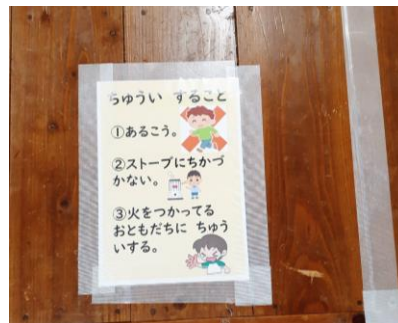 ちゅうい すること
①あるこう。
②ストーブにちかづ
かない。
③火をつかってる
おともだちに ちゅう
いする。